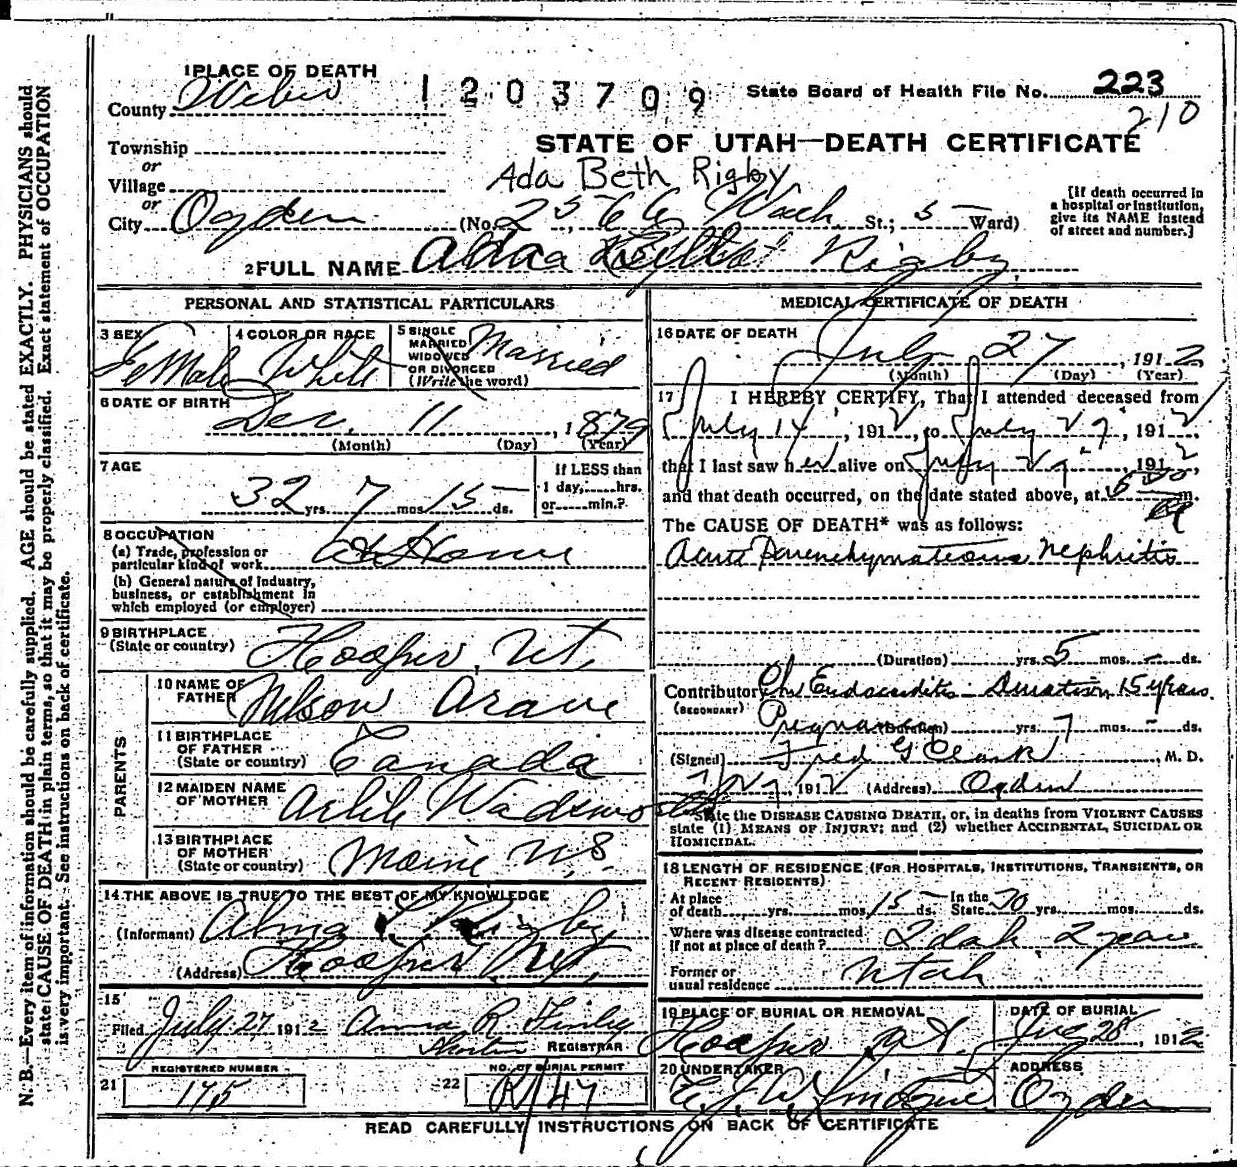 1 PLACE OF DEATH
County Weber 1203709 State Board of Health File No. 223
210
Township STATE OF UTAH—DEATH CERTIFICATE
or
Village Ada Beth Rigby
or
City Ogden (No. 2566 Wash St.; 5 Ward)
[If death occurred in a hospital or institution, give its NAME instead of street and number.]
2 FULL NAME Rigby
PERSONAL AND STATISTICAL PARTICULARS
3 SEX Female 4 COLOR OR RACE White 5 SINGLE MARRIED WIDOWED OR DIVORCED (Write the word) Married
6 DATE OF BIRTH
Dec. 11, 1879
(Month) (Day) (Year)
7 AGE
32 yrs. 7 mos. 15 ds.
If LESS than 1 day, hrs. or min.?
8 OCCUPATION
(a) Trade, profession or particular kind of work At Home
(b) General nature of Industry, business, or establishment in which employed (or employer)
9 BIRTHPLACE
(State or country) Hooper, Ut.
PARENTS
10 NAME OF FATHER Nelson Arave
11 BIRTHPLACE OF FATHER (State or country) Canada
12 MAIDEN NAME OF MOTHER Wadsworth
13 BIRTHPLACE OF MOTHER (State or country) Maine U.S.
14 THE ABOVE IS TRUE TO THE BEST OF MY KNOWLEDGE
(Informant) Alma L Rigby
(Address) Hooper Ut,
15
Filed July 27 1912 Anna R Finley
REGISTRAR
REGISTERED NUMBER
21 175
NO. OF BURIAL PERMIT
22 R/47
MEDICAL CERTIFICATE OF DEATH
16 DATE OF DEATH
July 27, 1912
(Month) (Day) (Year)
17 I HEREBY CERTIFY, That I attended deceased from
July 14, 1912, to July 27, 1912,
that I last saw her alive on July 27, 1912,
and that death occurred, on the date stated above, at m.
The CAUSE OF DEATH* was as follows:
Acute Parenchymatous Nephritis
(Duration) yrs. 5 mos. – ds.
Contributory Ch Endocarditis – Duration 15 years.
(SECONDARY)
Pregnancy (Duration) yrs. 7 mos. – ds.
(Signed) Fred G Clark, M. D.
7/27, 1912 (Address) Ogden
*State the DISEASE CAUSING DEATH, or, in deaths from VIOLENT CAUSES state (1) MEANS OF INJURY; and (2) whether ACCIDENTAL, SUICIDAL OR HOMICIDAL.
18 LENGTH OF RESIDENCE (FOR HOSPITALS, INSTITUTIONS, TRANSIENTS, OR RECENT RESIDENTS)
At place of death yrs. mos. 15 ds. In the State 30 yrs. mos. ds.
Where was disease contracted
if not at place of death? Idah 2 years
Former or
usual residence Utah
19 PLACE OF BURIAL OR REMOVAL
Hooper
DATE OF BURIAL
28, 1912
20 UNDERTAKER
ADDRESS
Ogden
READ CAREFULLY INSTRUCTIONS ON BACK OF CERTIFICATE
N.B.—Every item of information should be carefully supplied. AGE should be stated EXACTLY. PHYSICIANS should
state CAUSE OF DEATH in plain terms, so that it may be properly classified. Exact statement of OCCUPATION
is very important. See instructions on back of certificate.